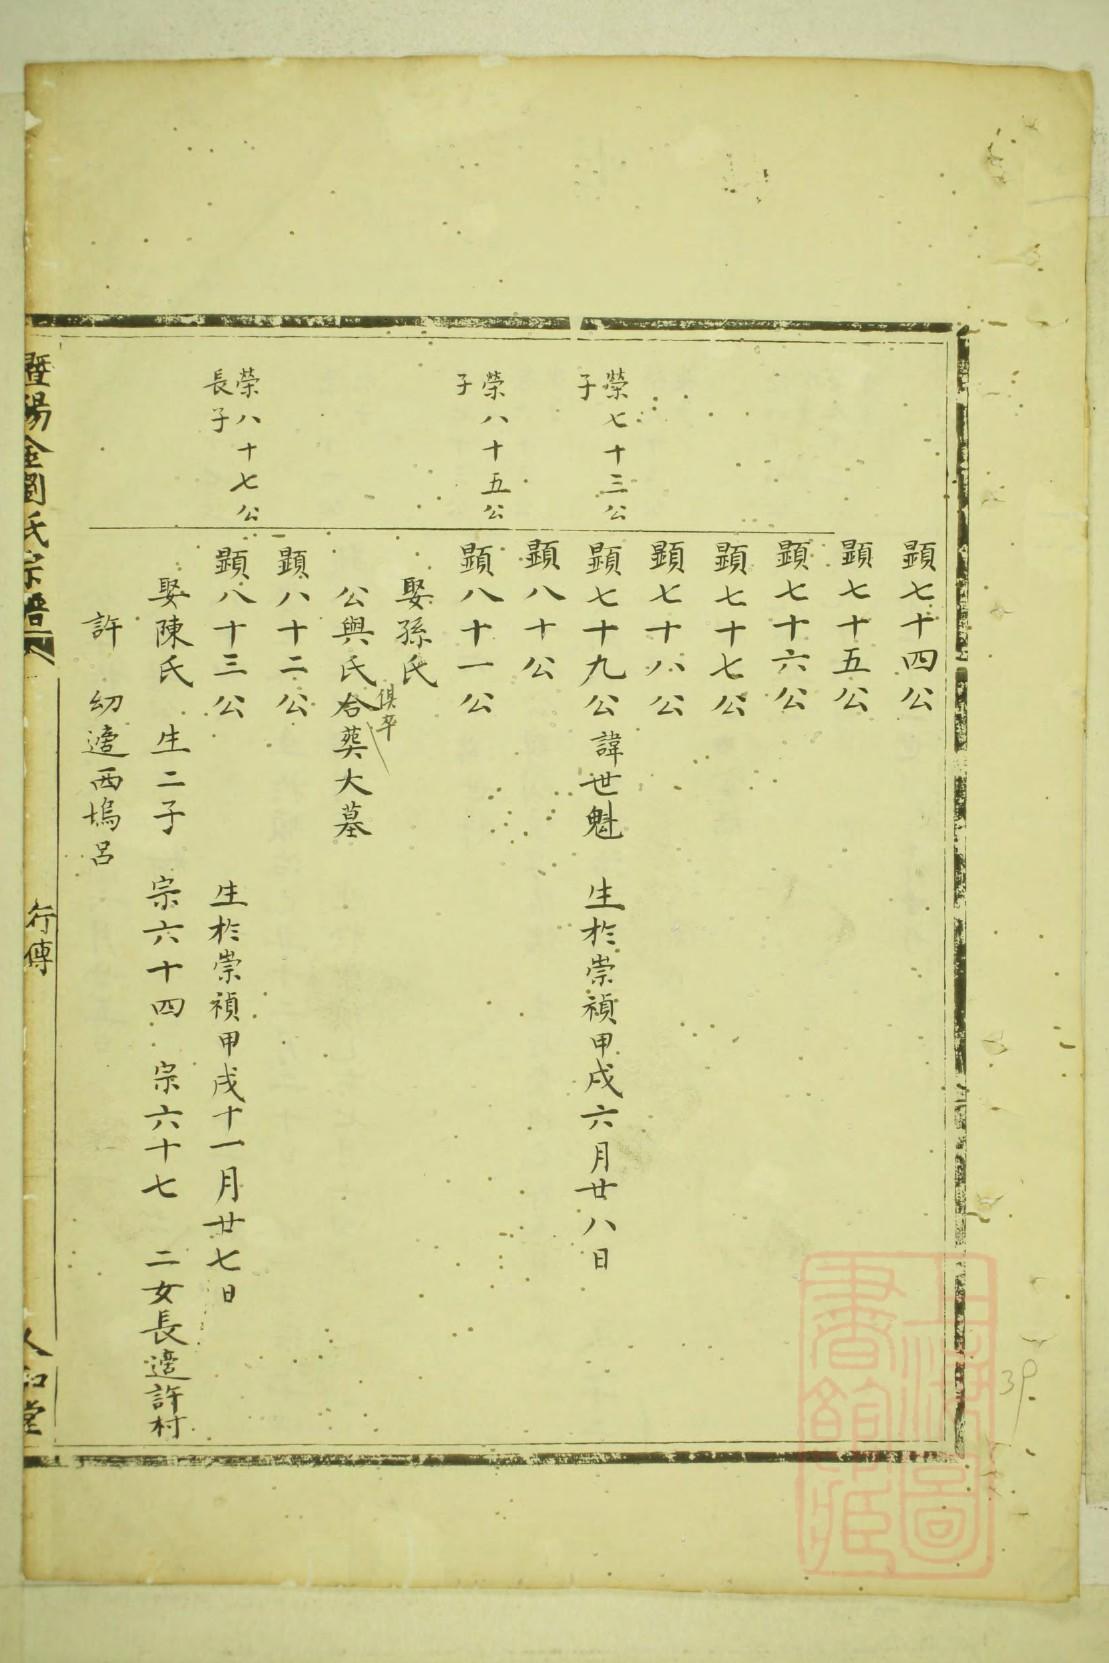 顯七十四公
顯七十五公
顯七十六公
顯七十七公
顯七十八公
榮七十三公
子
顯七十九公 諱世魁 生於崇禎甲戌六月廿八日
顯八十公
榮八十五公
子
顯八十一公
娶孫氏
俱卒
公與氏合葬大墓
顯八十二公
榮八十七公
長子
顯八十三公 生於崇禎甲戌十一月廿七日
娶陳氏 生二子 宗六十四 宗六十七 二女長適許村
許 幼適西塢呂
暨陽金閣氏宗譜
行傳
人和堂
上海圖
書館藏
39